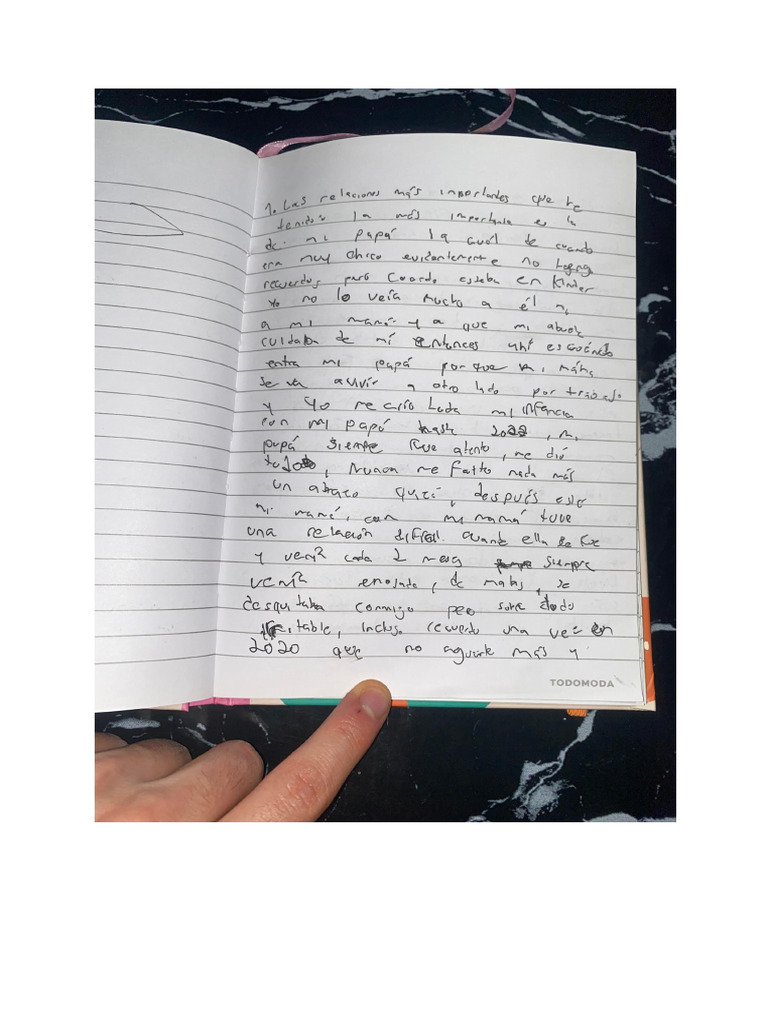 1. Las relaciones más importantes que he
tenido: la más importante es la
de mi papá la cuál de cuando
era muy chico evidentemente no tengo
recuerdos, pero cuando estaba en Kinder
Yo no lo veía mucho a él ni
a mi mamá ya que mi abuela
cuidaba de mí entonces ahí es cuando
entra mi papá porque mi mamá
se va a vivir a otro lado por trabajo
y Yo me crió toda mi infancia
con mi papá hasta 2022, mi
papá siempre fue atento, me dió
todo, Nunca me falto nada más
un abrazo quizá, después está
mi mamá, con mi mamá tuve
una relación difícil. cuando ella se fue
y venía cada 2 meses siempre
venía enojada, de malas, se
desquitaba conmigo pero sobre todo
irritable, incluso recuerdo una vez en
2020 que no aguante más y
TODOMODA